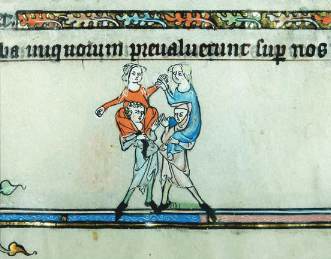 ba iniquorum preualuerunt suꝑ nos